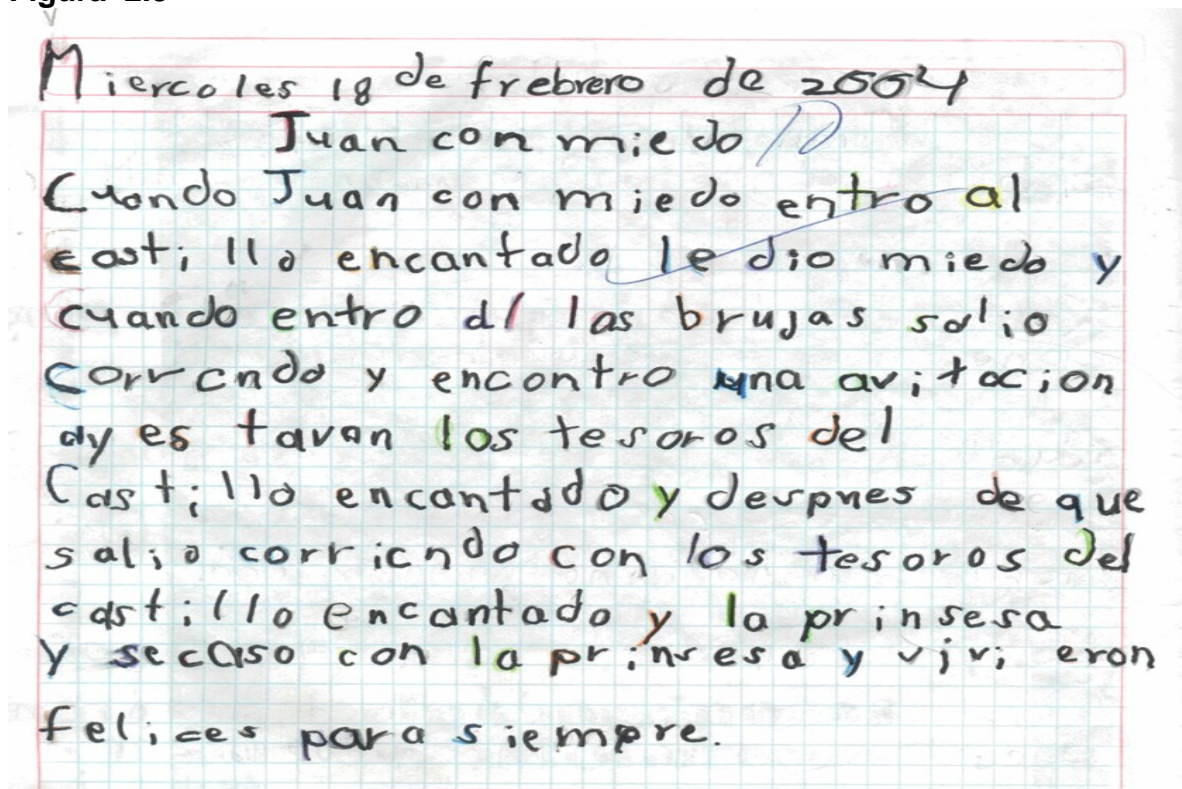 Miercoles 18 de frebrero de 2004
Juan con miedo 10
Cuando Juan con miedo entro al
castillo encantado le dio miedo y
cuando entro a las brujas salio
correndo y encontro una avitacion
ay es tavan los tesoros del
Castillo encantado y despues de que
salio corriendo con los tesoros del
castillo encantado y la prinsesa
y secaso con la prinsesa y vivieron
felices para siempre.